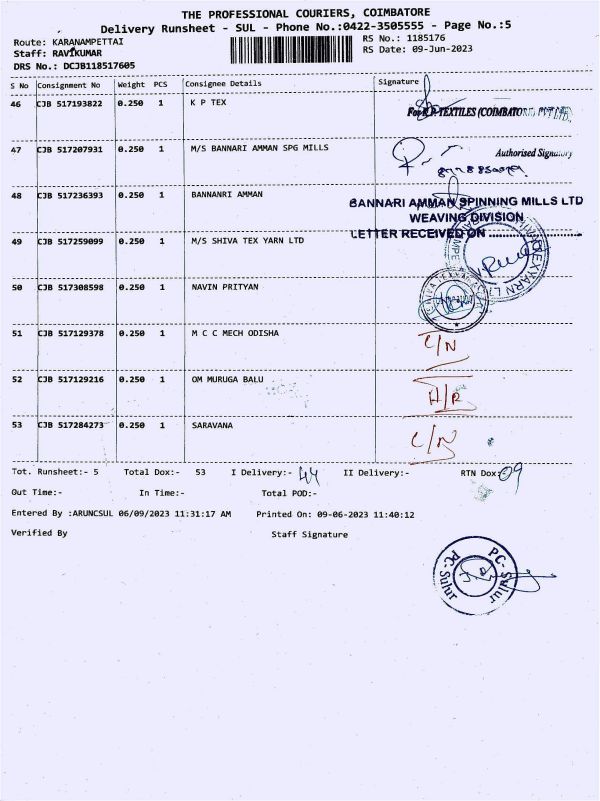 THE PROFESSIONAL COURIERS, COIMBATORE
Delivery Runsheet - SUL - Phone No.:0422-3505555 - Page No.:5
Route: KARANAMPETTAI
RS No.: 1185176
Staff: RAVIKUMAR
RS Date: 09-Jun-2023
DRS No.: DCJB118517605
S No Consignment No Weight PCS Consignee Details Signature
46 CJB 517193822 0.250 1 K P TEX
For K.P. TEXTILES (COIMBATORE) PVT LTD.,
47 CJB 517207931 0.250 1 M/S BANNARI AMMAN SPG MILLS
Authorised Signatory
48 CJB 517236393 0.250 1 BANNANRI AMMAN
BANNARI AMMAN SPINNING MILLS LTD
WEAVING DIVISION
LETTER RECEIVED ON
49 CJB 517259099 0.250 1 M/S SHIVA TEX YARN LTD
50 CJB 517308598 0.250 1 NAVIN PRITYAN
51 CJB 517129378 0.250 1 M C C MECH ODISHA
C/N
52 CJB 517129216 0.250 1 OM MURUGA BALU
H/R
53 CJB 517284273 0.250 1 SARAVANA
C/N
Tot. Runsheet:- 5 Total Dox:- 53 I Delivery:- 44 II Delivery:- RTN Dox:- 09
Out Time:- In Time:- Total POD:-
Entered By :ARUNCSUL 06/09/2023 11:31:17 AM Printed On: 09-06-2023 11:40:12
Verified By Staff Signature
PC-Sulur
PC-Sulur